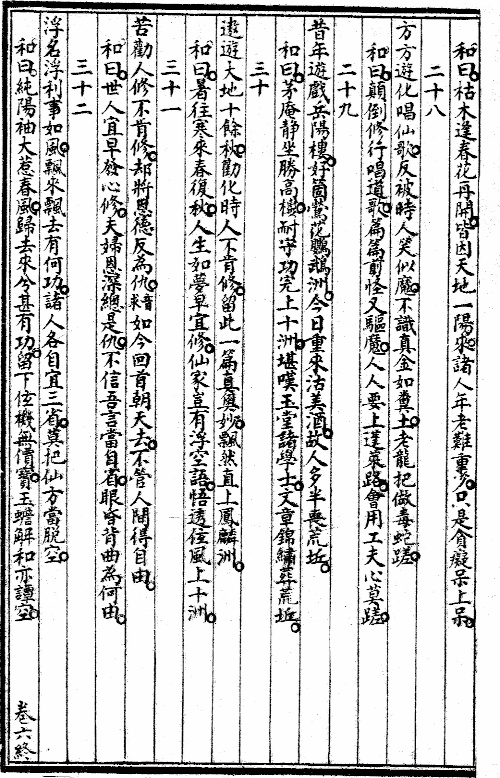 和曰枯木逢春花再開皆因天地一陽來諸人年老難重少只是貪癡呆上呆
二十八
方方遊化唱仙歌反被時人笑似魔不識真金如糞土老龍把做毒蛇蹉
和曰顛倒修行唱道歌篇篇剪怪又驅魔人人要上蓬萊路會用工夫心莫蹉
二十九
昔年遊戲岳陽樓好箇鶯花鸚鵡洲今日重來沽美酒故人多半喪荒坵
和曰茅庵静坐勝高樓耐守功完上十洲堪嘆玉堂諸學士文章錦繡葬荒坵
三十
遨遊大地十餘秋勸化時人不肯修留此一篇真奧妙飄然直上鳳麟洲
和曰暑往寒來春復秋人生如夢早宜修仙家豈有浮空語悟透俓風上十洲
三十一
苦勸人修不肯修却將恩德反為仇求音如今回首朝天去不管人閒得自由
和曰世人宜早發心修夫婦恩深總是仇不信吾言當自省眼昏背曲為何由
三十二
浮名浮利事如風飄來飄去有何功諸人各自宜三省莫把仙方當脫空
和曰純陽柚大惹春風歸去來兮甚有功留下俓機無價寶玉蟾解和亦譚空
卷六終